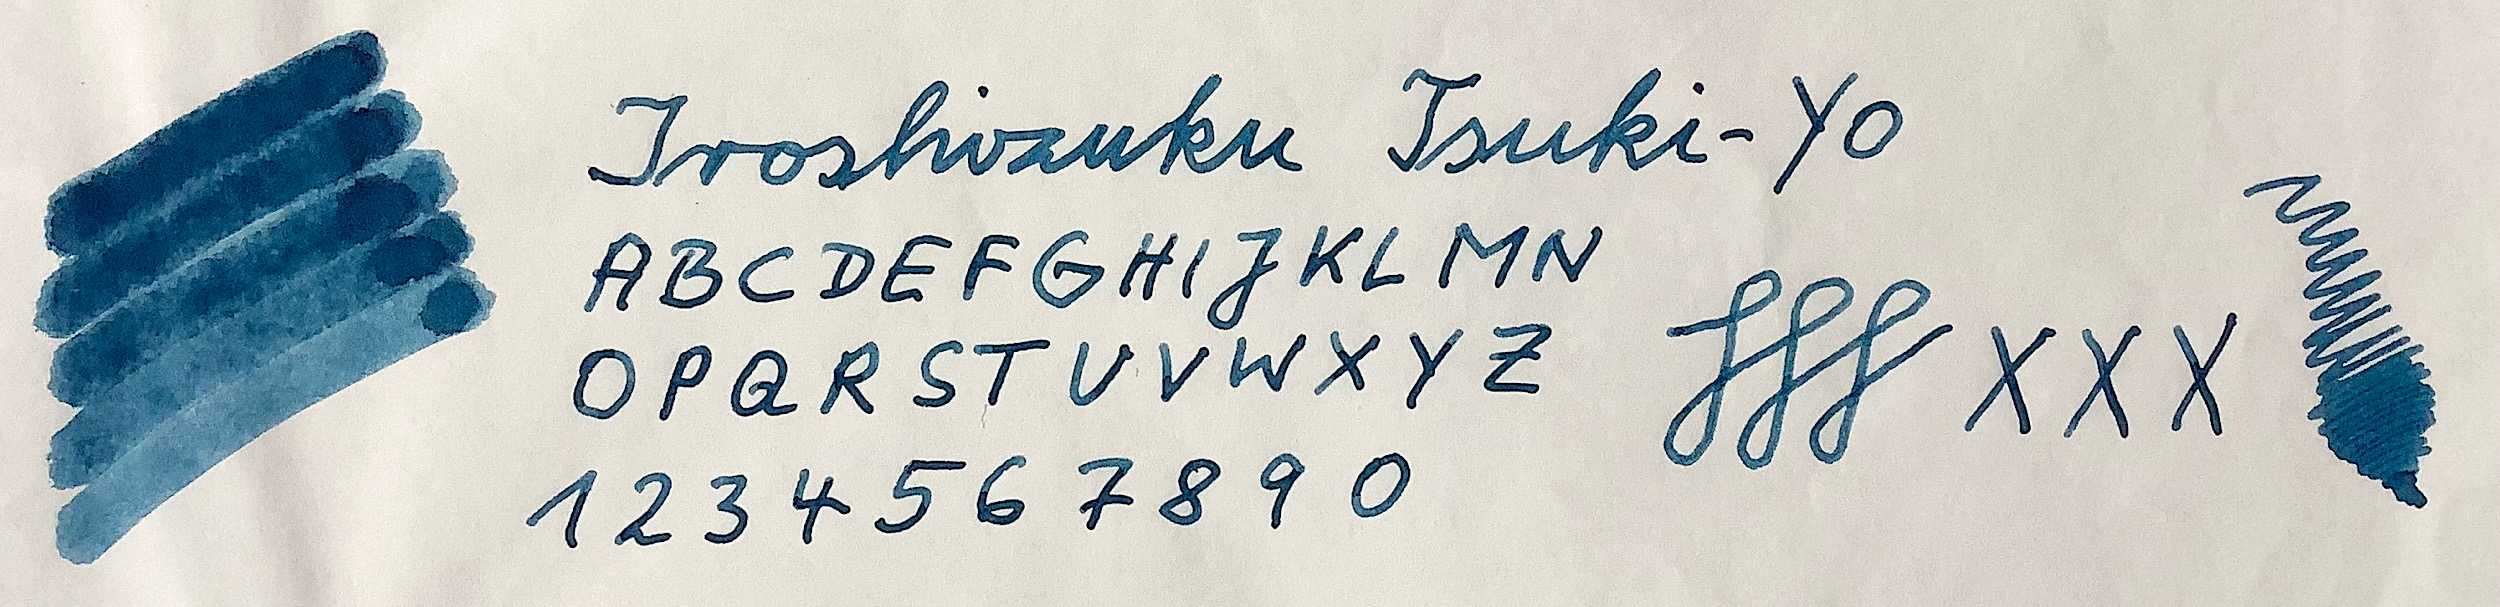 Iroshizuku Tsuki-Yo
A B C D E F G H I J K L M N
O P Q R S T U V W X Y Z
fff X X X
1 2 3 4 5 6 7 8 9 0